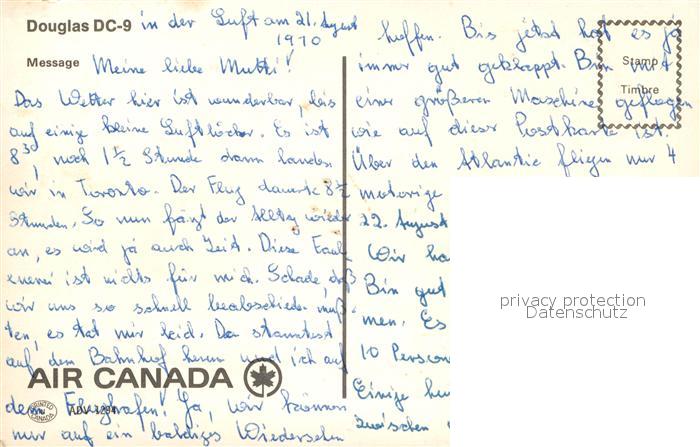 Douglas DC-9 in der Luft am 21. August
1970
Message Meine liebe Mutti!
Das Wetter hier ist wunderbar, bis
auf einige kleine Luftlöcher. Es ist
8³⁰, noch 1½ Stunde dann landen
wir in Toronto. Der Flug dauerte 8½
Stunden. So nun fängt der Alltag wieder
an, es wird ja auch Zeit. Diese Faul-
enzerei ist nichts für mich. Schade, daß
wir uns so schnell verabschieden muß
ten, es tat mir leid. Du standest
auf dem Bahnhof herum und ich auf
AIR CANADA
dem Flughafen! Ja, wir können
PRINTED CANADA ADV 1294
nur auf ein baldiges Wiedersehen
hoffen. Bis jetzt hat es ja
immer gut geklappt. Bin mit
einer größeren Maschine geflogen
wie auf dieser Postkarte ist.
Über den Atlantic fliegen nur 4
motorige
22. August
Wir ha
Bin gut
men. Es
10 Person
Einige hu
zwischen
Stamp
Timbre
privacy protection
Datenschutz